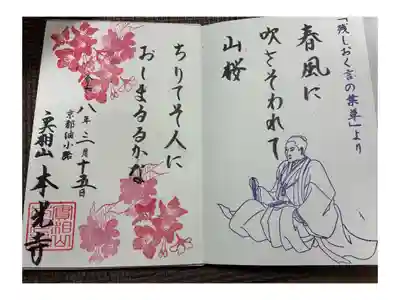 「残しおく言の葉草」より
春風に
吹さそわれて
山桜
ちりてそ人に
おしまるるかな
八年三月十五日
京都油小路
実相山 本光寺